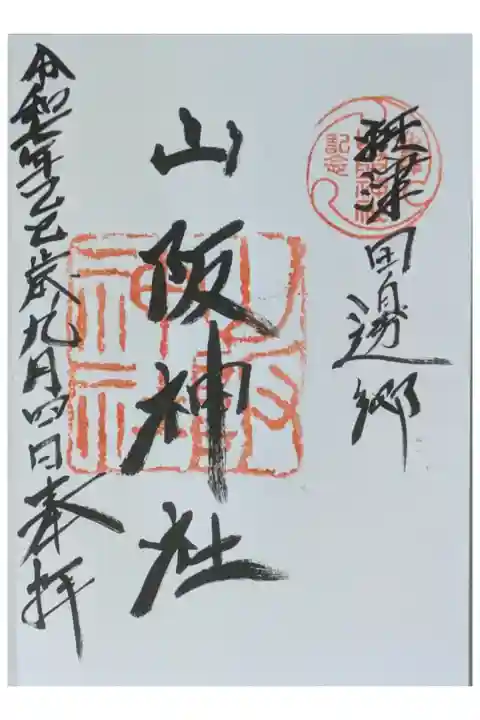 摂津田邊郷
山阪神社
令和七年乙巳歳九月四日奉拝
記念
山阪神社